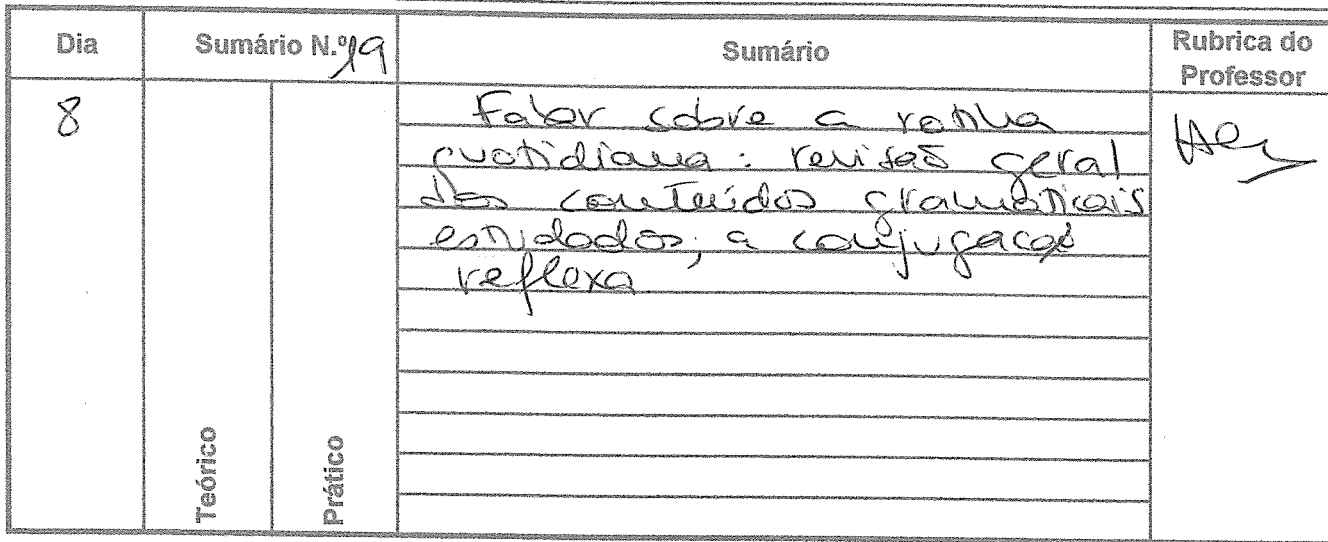 Dia
Sumário N.º 19
Sumário
Rubrica do
Professor
8
Falar sobre a rotina
quotidiana: revisão geral
dos conteúdos gramaticais
estudados; a conjugação
reflexa
Teórico
Prático